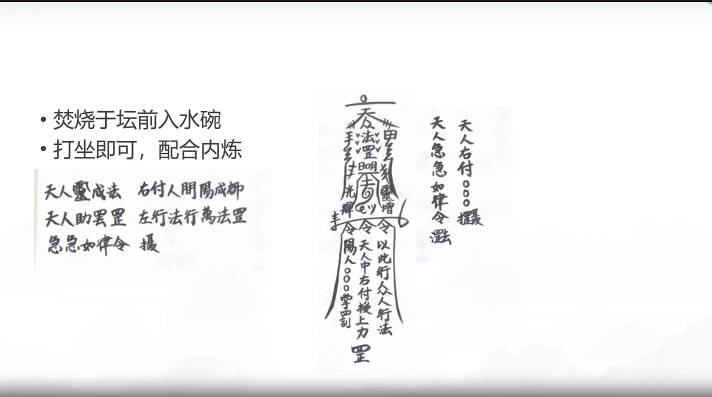 • 焚烧于坛前入水碗
• 打坐即可，配合内炼
天人靈成法 右付人間陽成師
天人助罡罡 左行法行萬法罡
急急如律令 摄
天
众
法
罡
明
光
輝
靈
增
令令令
以此行众人行法
天人中右付授上力
陽人○○○掌罡
罡
天人右付○○○摄
天人急急如律令